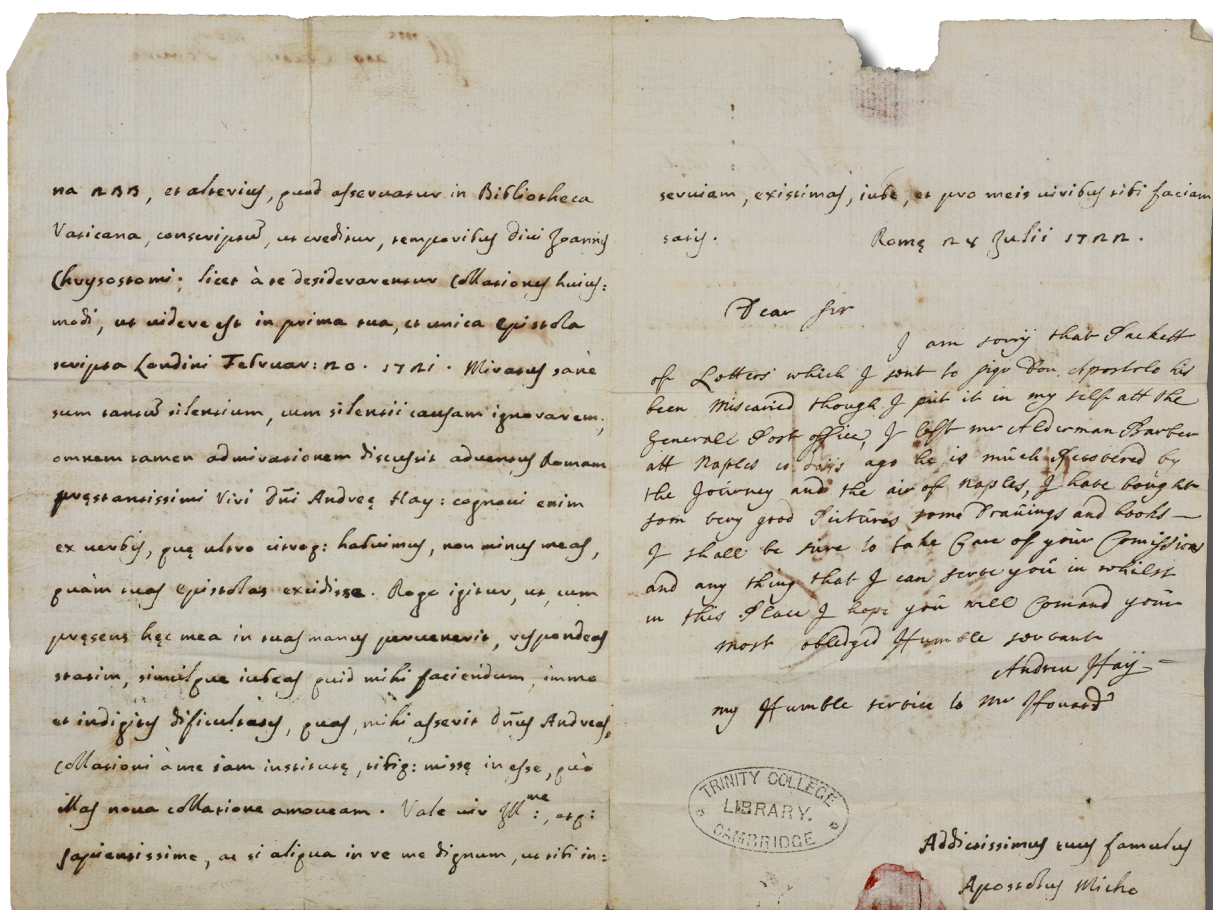 na 2BB, et alterius, quod asservatur in Bibliotheca
Vaticana, conscriptũ, ut creditur, temporibus divi Joannis
Chrysostomi; licet à te desiderarentur Collationes huius:
modi, ut videre est in prima tua, et unica epistola
scripta Londini Februar: 20. 1721. Miratus sanè
sum tantũ silentium, cum silentii causam ignorarem;
omnem tamen admirationem discussit adventus Romam
pręstantissimi Viri Dñi Andreę Hay: cognovi enim
ex verbis, quę ultro citroq: habuimus, non minus meas,
quàm tuas epistolas excidisse. Rogo igitur, ut, cum
pręsens hęc mea in tuas manus pervenerit, respondeas
statim, simulque iubeas quid mihi faciendum, immo
et indigites dificultates, quas, mihi asserit Dñus Andreas,
collationi à me iam institutę, tibiq: missę inesse, quò
illas nova collatione amoveam. Vale vir Illme:, atq:
sapientissime, ac si aliqua in re me dignum, ut tibi in:
serviam, existimas, iube, et pro meis viribus tibi faciam
satis. Romę 24 Julii 1722.
Dear Sir
I am sorry that Packett
of Letters which I sent to sigr Don. Apostolo his
been Miscaried though I put it in my self att the
Generall Post office, I left mr Alderman Barber
att Naples 10 days ago he is much Recovered by
the Journey and the air of Naples, I have bought
som very good Pictures some Drauings and books —
I shall be sure to take Care of your Comissions
and any thing that I can serve you in whilst
in this Place I hope you will Comand your
most obledged Humble servant
Andrew Hay —
my Humble service to Mr Howard
TRINITY COLLEGE
LIBRARY.
CAMBRIDGE
Addictissimus tuus famulus
Apostolus Micho